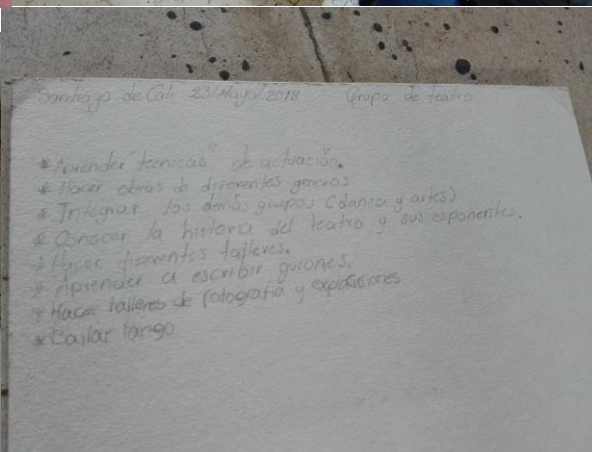 Santiago de Cali 23/Mayo/2018 Grupo de teatro.
* Aprender "tecnicas" de actuación.
* Hacer obras de diferentes generos
* Integrar los demás grupos (danza y artes)
* Conocer la historia del teatro y sus esponentes.
* Hacer diferentes talleres.
* Aprender a escribir guiones.
* Hacer talleres de fotografía y exposiciones
* Bailar tango